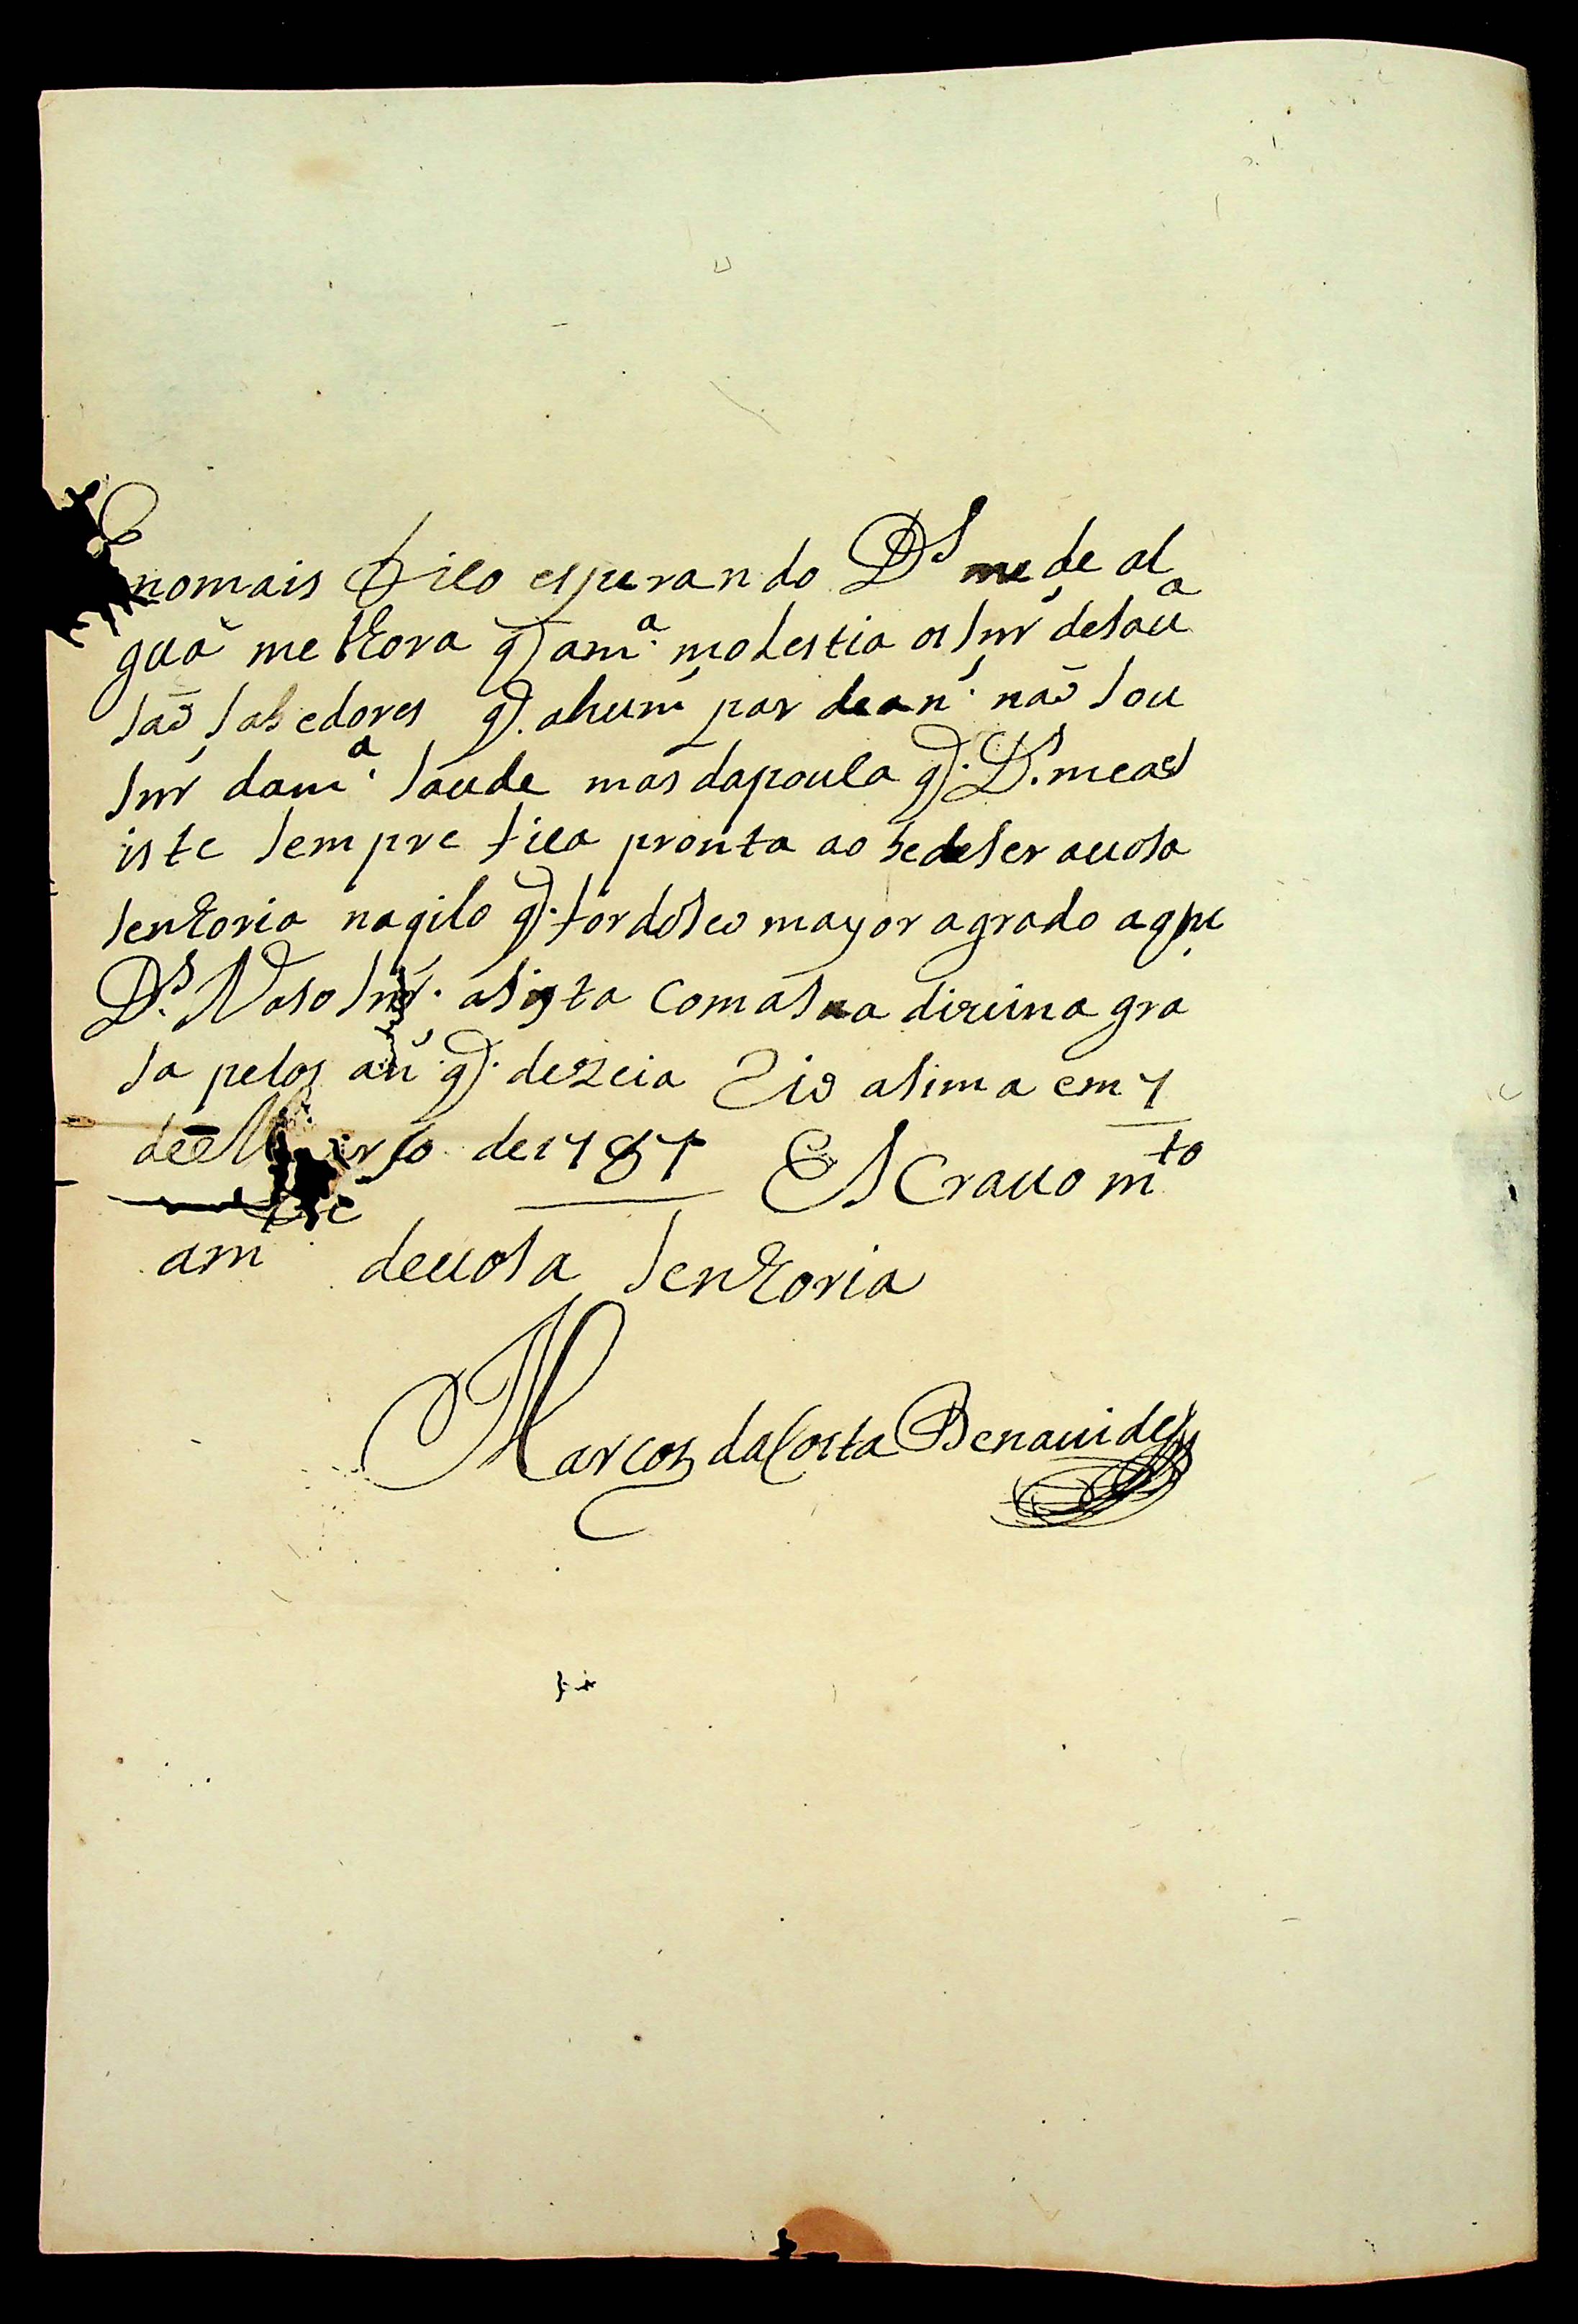 E nomais fico esperando Ds me de al
guã melhora q. a ma. molestia os snr desaũ
saõ sabedores q. ahum par de an. naõ sou
snr dama. saude mas da pouca q. Ds. meas
iste sempre fica pronta ao bedeser auosa
senhoria naqilo q. for dóseo mayor agrado aque
Ds. Noso Snr. asista Comasua diuina gra
sa pelos an. q. dezeia Rio asima em 7
de Marso de 1787 EsCrauo mto
am deuosa senhoria
Marcos da Costa Benauides